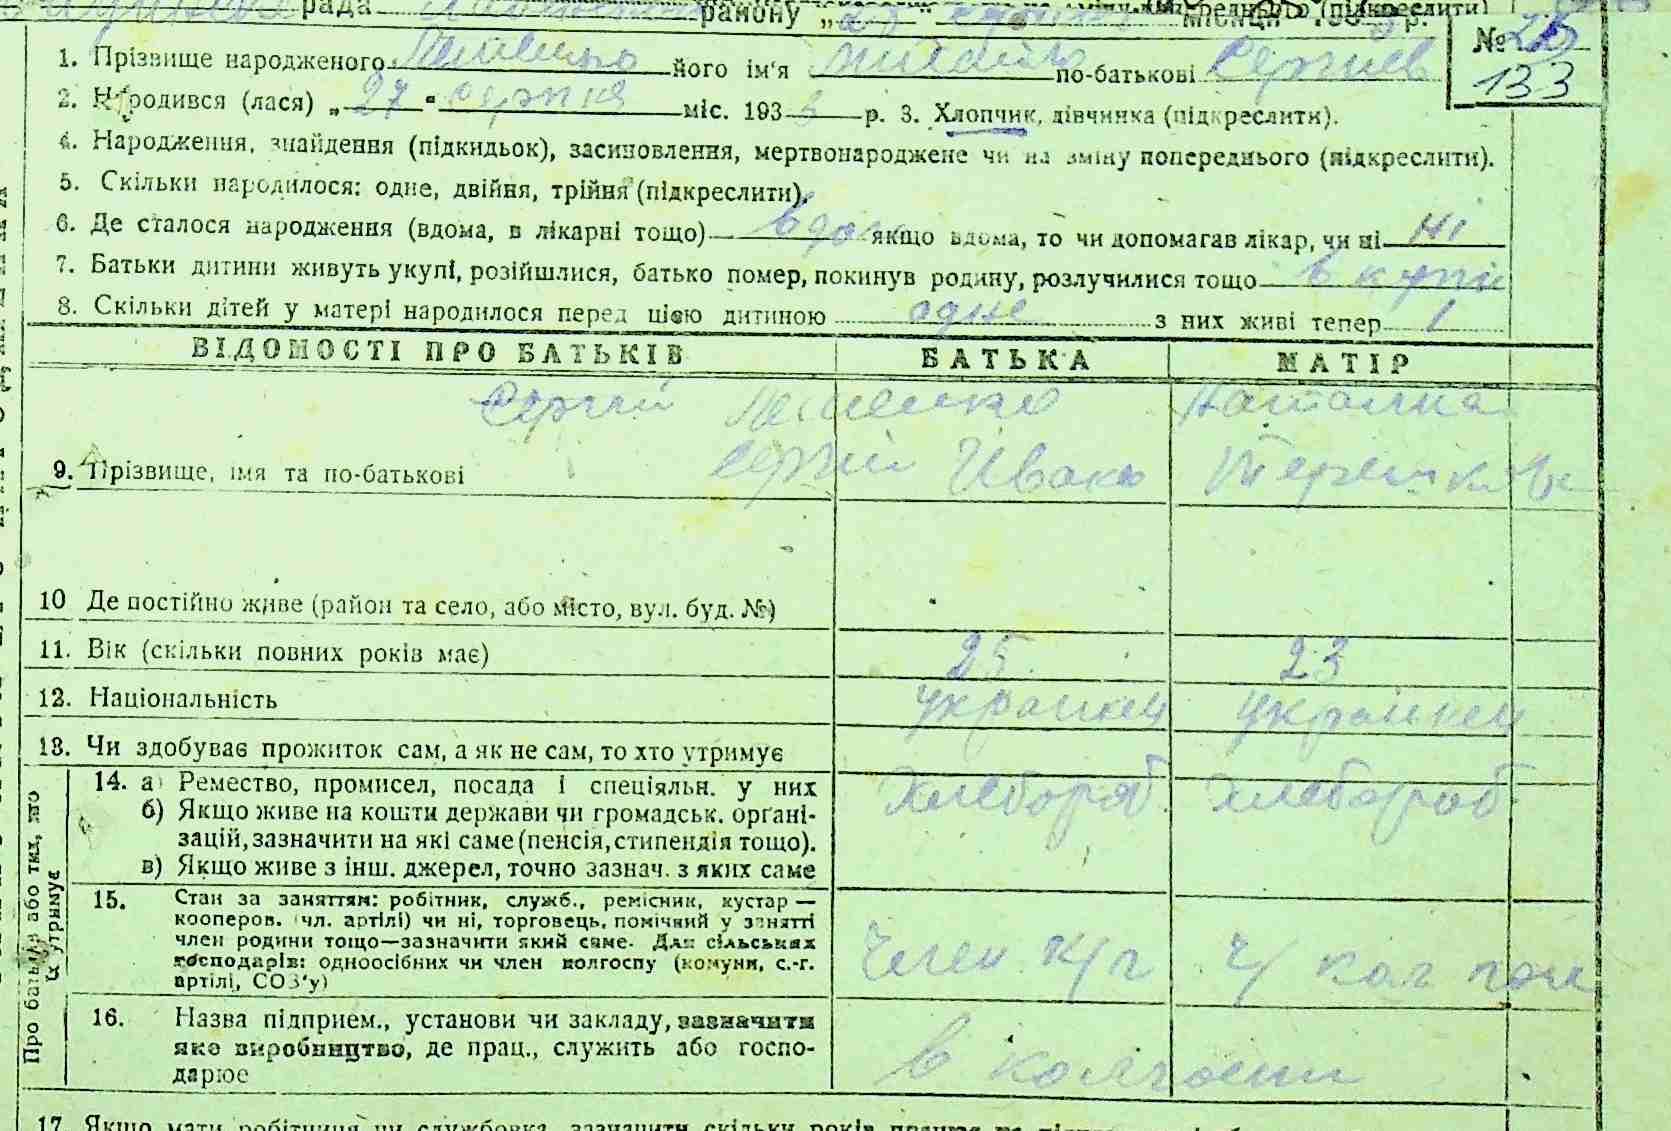 рада району „
№ 25
133
1. Прізвище народженого його ім'я Михайло по-батькові Сергиев
2. Народився (лася) „27" серпня міс. 1933 р. 3. Хлопчик, дівчинка (підкреслити).
4. Народження, знайдення (підкидьок), засиновлення, мертвонароджене чи на зміну попереднього (підкреслити).
5. Скільки народилося: одне, двійня, трійня (підкреслити).
6. Де сталося народження (вдома, в лікарні тощо) вдома якщо вдома, то чи допомагав лікар, чи ні ні
7. Батьки дитини живуть укупі, розійшлися, батько помер, покинув родину, розлучилися тощо вкупи
8. Скільки дітей у матері народилося перед цією дитиною одне з них живі тепер 1
ВІДОМОСТІ ПРО БАТЬКІВ БАТЬКА МАТІР
Сергий
9. Прізвище, імя та по-батькові Сергий Ивано
10 Де постійно живе (район та село, або місто, вул. буд. №)
11. Вік (скільки повних років має) 25 23
12. Національність украинец украинец
13. Чи здобуває прожиток сам, а як не сам, то хто утримує
Про батьків або тих, хто їх утримує
14. а) Ремество, промисел, посада і спеціяльн. у них Хлебороб хлебороб
б) Якщо живе на кошти держави чи громадськ. орґані-
зацій, зазначити на які саме (пенсія, стипендія тощо).
в) Якщо живе з інш. джерел, точно зазнач. з яких саме
15. Стан за заняттям: робітник, служб., ремісник, кустар —
кооперов. (чл. артілі) чи ні, торговець, помічний у занятті
член родини тощо—зазначити який саме. Для сільських
господарів: одноосібних чи член колгоспу (комуни, с.-г.
артілі, СОЗ'у) Член к/г ч/ кол гос
16. Назва підприєм., установи чи закладу, зазначити
яке виробництво, де прац., служить або госпо-
дарює в колгоспи
17. Якщо мати робітниця чи службовка, зазначити скільки років